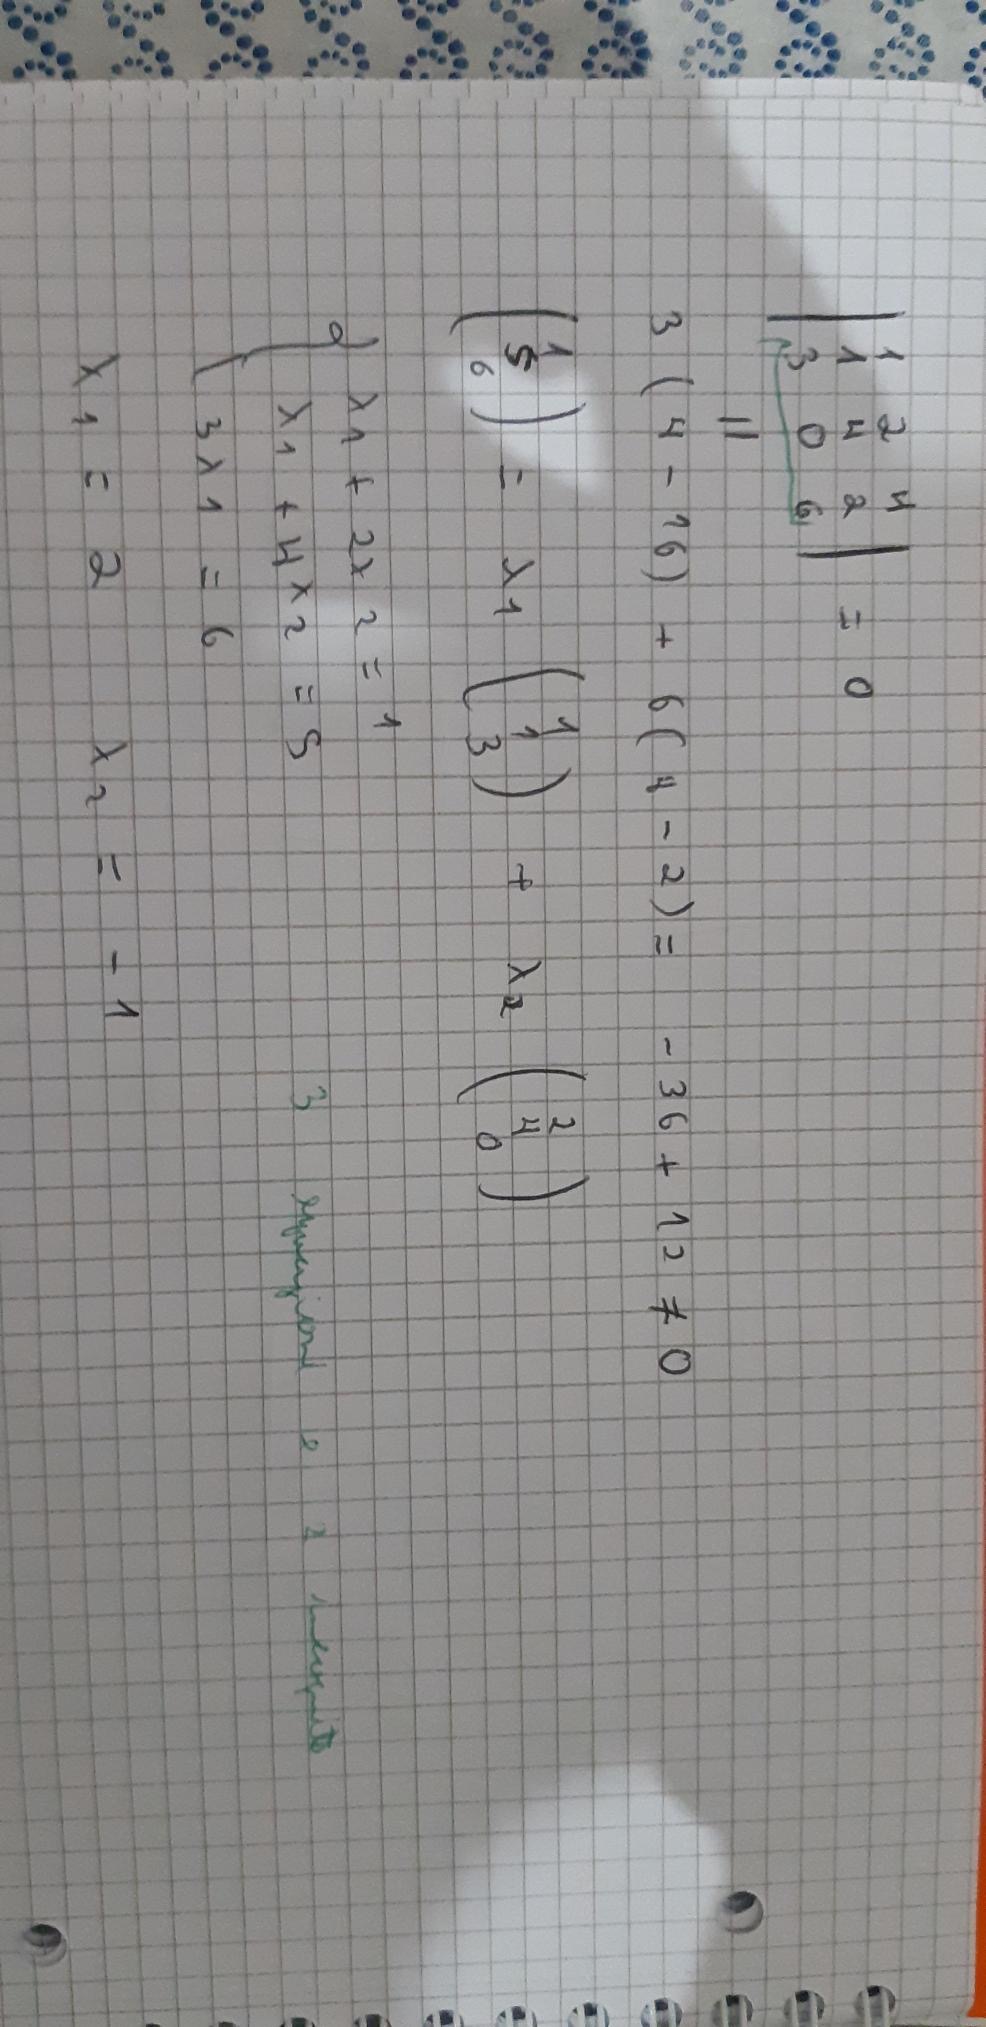 | 1 2 4 |
| 1 4 2 | = 0
| 3 0 6 |
||
3 ( 4 - 16 ) + 6 ( 4 - 2 ) = - 36 + 12 ≠ 0
( 1 5 6 ) = λ1 ( 1 1 3 ) + λ2 ( 2 4 0 )
{ λ1 + 2λ2 = 1
λ1 + 4λ2 = 5 3 equazioni e 2 incognite
3λ1 = 6
λ1 = 2 λ2 = - 1